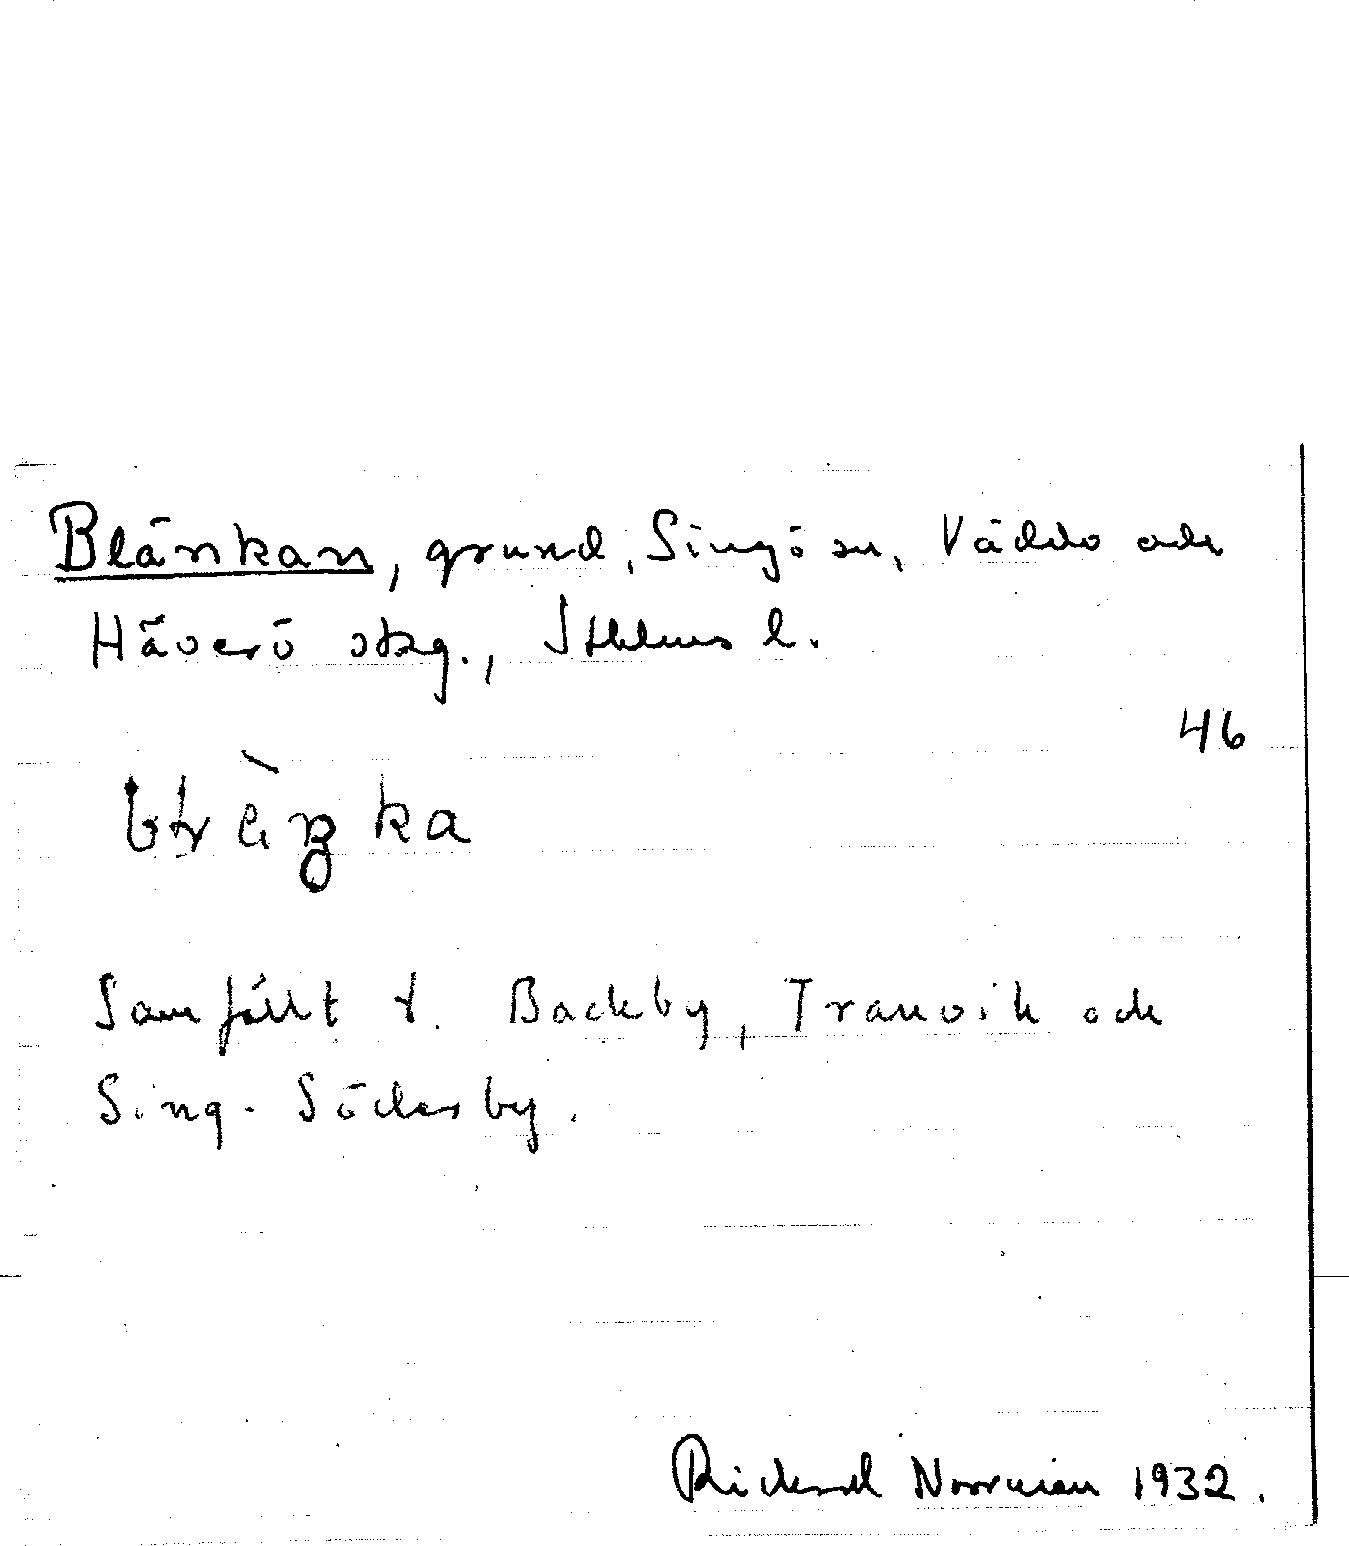 Blänkan, grund, Singö sn, Väddö och
Häverö skg., Sthlms l.
46
Samfällt t. Backby, Tranvik och
Sing-Söderby.
Rickard Norrman 1932.